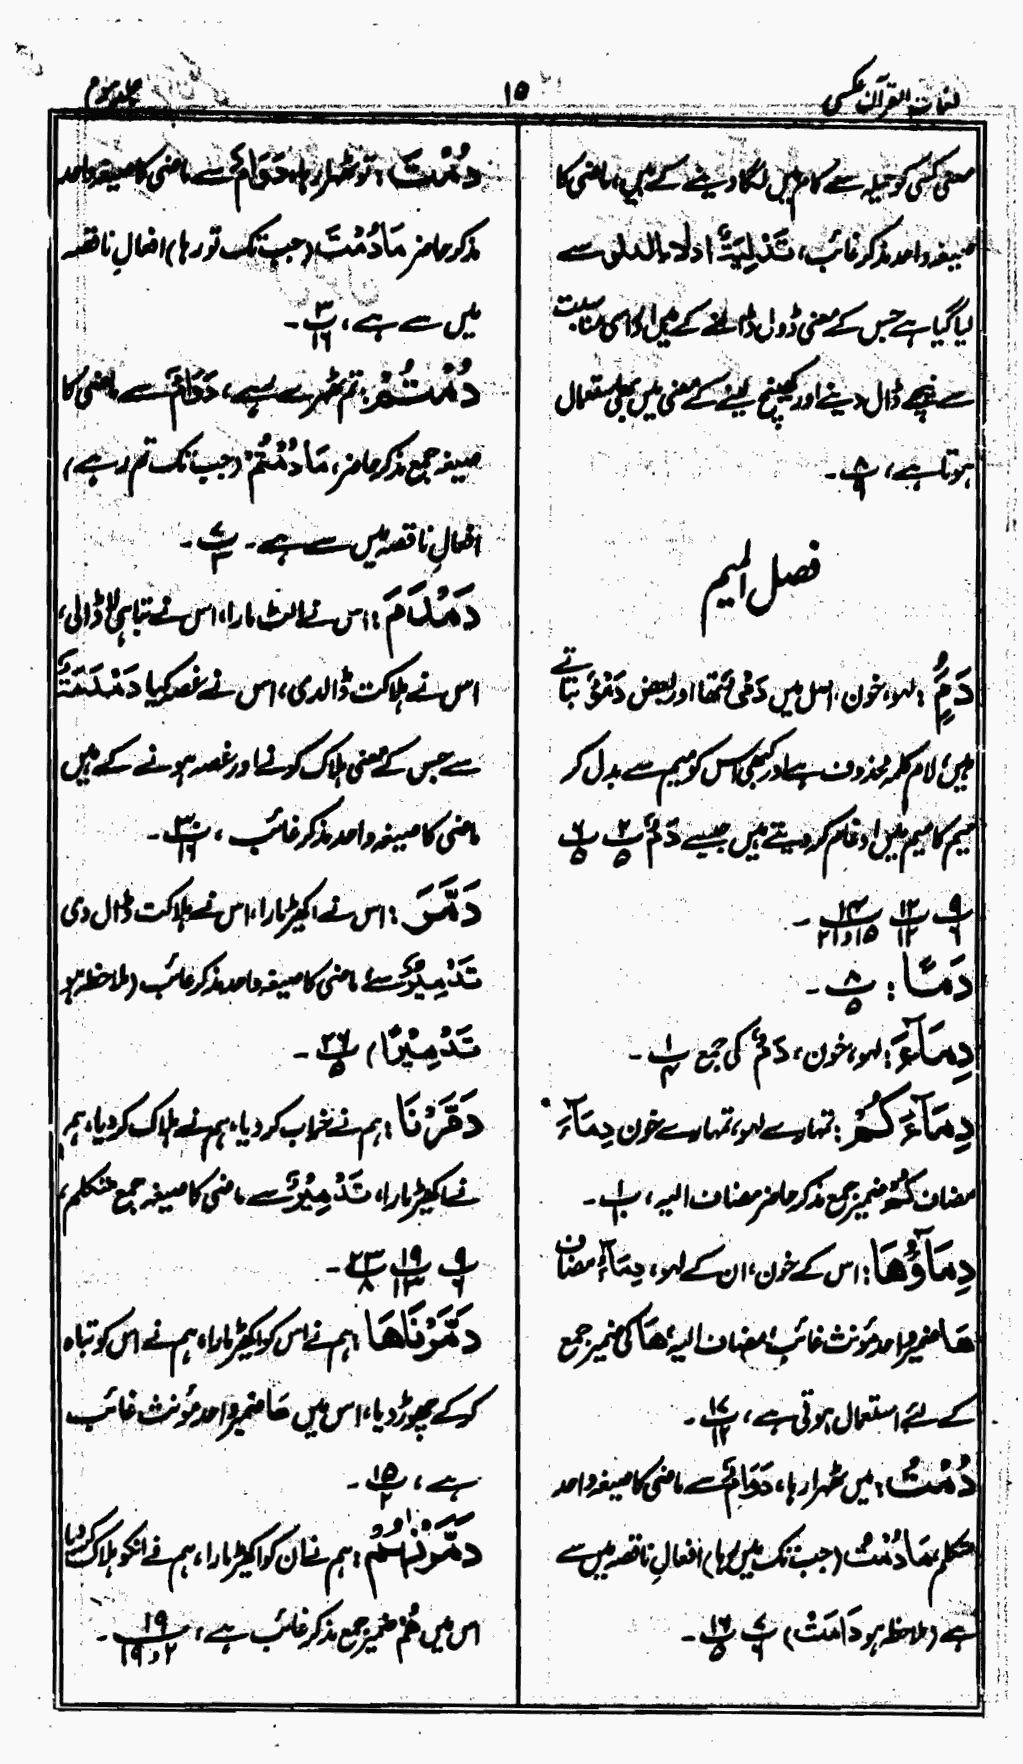 لغات القرآن عکسی
۱۵
جلد سوم
معنی کسی کو حیلہ سے کام میں لگا دینے کے ہیں، ماضی کا
صیغہ واحد مذکر غائب، تَدْلِیَۃٌ ادلاء الدلو سے
لیا گیا ہے جس کے معنی ڈول ڈالنے کے ہیں اور اسی مناسبت
سے نیچے ڈال دینے اور کھینچ لینے کے معنی میں بھی استعمال
ہوتا ہے، پ ۸/۹ ۔
فصل المیم
دَمٌ : لہو، خون، اصل میں دَمَیٌ تھا اور بعض دَمَوٌ بتاتے
ہیں، لام کلمہ محذوف ہے اور کبھی اس کو میم سے بدل کر
میم کا میم میں ادغام کر دیتے ہیں جیسے دَمٌّ پ ۲/۵ پ ۶/۵
پ ۹/۶ پ ۱۲/۱۲ پ ۱۴/۱۵ و ۲۱ ۔
دَمًا : پ ۸/۵ ۔
دِمَآءَ : لہو، خون، دَمٌ کی جمع پ ۱/۴ ۔
دِمَآءَکُمْ : تمہارے لہو، تمہارے خون دِمَآءَ
مضاف کُمْ ضمیر جمع مذکر حاضر مضاف الیہ، پ ۱ ۔
دِمَآؤُھَا : اس کے خون، ان کے لہو، دِمَآءُ مضاف
ھَا ضمیر واحد مؤنث غائب، مضاف الیہ ھَا کی ضمیر جمع
کے لئے استعمال ہوتی ہے، پ ۱۷/۱۲ ۔
دُمْتُ : میں ٹھہرا رہا، دَوَامٌ سے ماضی کا صیغہ واحد
متکلم، مَادُمْتُ (جب تک میں رہا) افعالِ ناقصہ میں سے
ہے (ملاحظہ ہو دَامَتْ) پ ۷/۶ پ ۱۶/۵ ۔
دُمْتَ : تو ٹھہرا رہا، دَوَامٌ سے ماضی کا صیغہ واحد
مذکر حاضر مَادُمْتَ (جب تک تو رہا) افعالِ ناقصہ
میں سے ہے، پ ۳/۱۶ ۔
دُمْتُمْ : تم ٹھہرے رہے، دَوَامٌ سے ماضی کا
صیغہ جمع مذکر حاضر، مَادُمْتُمْ (جب تک تم رہے)
افعالِ ناقصہ میں سے ہے ۔ پ ۷/۳ ۔
دَمْدَمَ : اس نے الٹ مارا، اس نے تباہی لا ڈالی،
اس نے ہلاکت ڈالدی، اس نے غصہ کیا دَمْدَمَۃٌ
سے جس کے معنی ہلاک کرنے اور غصہ ہونے کے ہیں
ماضی کا صیغہ واحد مذکر غائب، پ ۳۰/۱۶ ۔
دَمَّرَ : اس نے اکھیڑ مارا، اس نے ہلاکت ڈال دی
تَدْمِیْرٌ سے ماضی کا صیغہ واحد مذکر غائب (ملاحظہ ہو
تَدْمِیْرًا) پ ۲۶/۵ ۔
دَمَّرْنَا : ہم نے خراب کر دیا، ہم نے ہلاک کر دیا، ہم
نے اکھیڑ مارا، تَدْمِیْرٌ سے ماضی کا صیغہ جمع متکلم،
پ ۹/۶ پ ۱۹/۱۳ پ ۲۳/۸ ۔
دَمَّرْنَاھَا : ہم نے اس کو اکھیڑ مارا، ہم نے اس کو تباہ
کر کے چھوڑ دیا، اس میں ھَا ضمیر واحد مؤنث غائب
ہے، پ ۱۵/۲ ۔
دَمَّرْنٰھُمْ : ہم نے ان کو اکھیڑ مارا، ہم نے انکو ہلاک کر دیا
اس میں ھُمْ ضمیر جمع مذکر غائب ہے، پ ۱۹/۲ و ۱۹ ۔